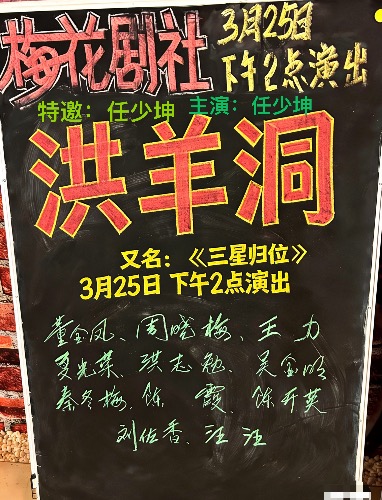 梅花剧社
3月25日
下午2点演出
特邀：任少坤 主演：任少坤
洪羊洞
又名：《三星归位》
3月25日 下午2点演出
董金凤、周晓梅、王 力
夏光荣、洪志勉、吴金明
秦冬梅、陈 霞、陈开英
刘佐香、汪 汪